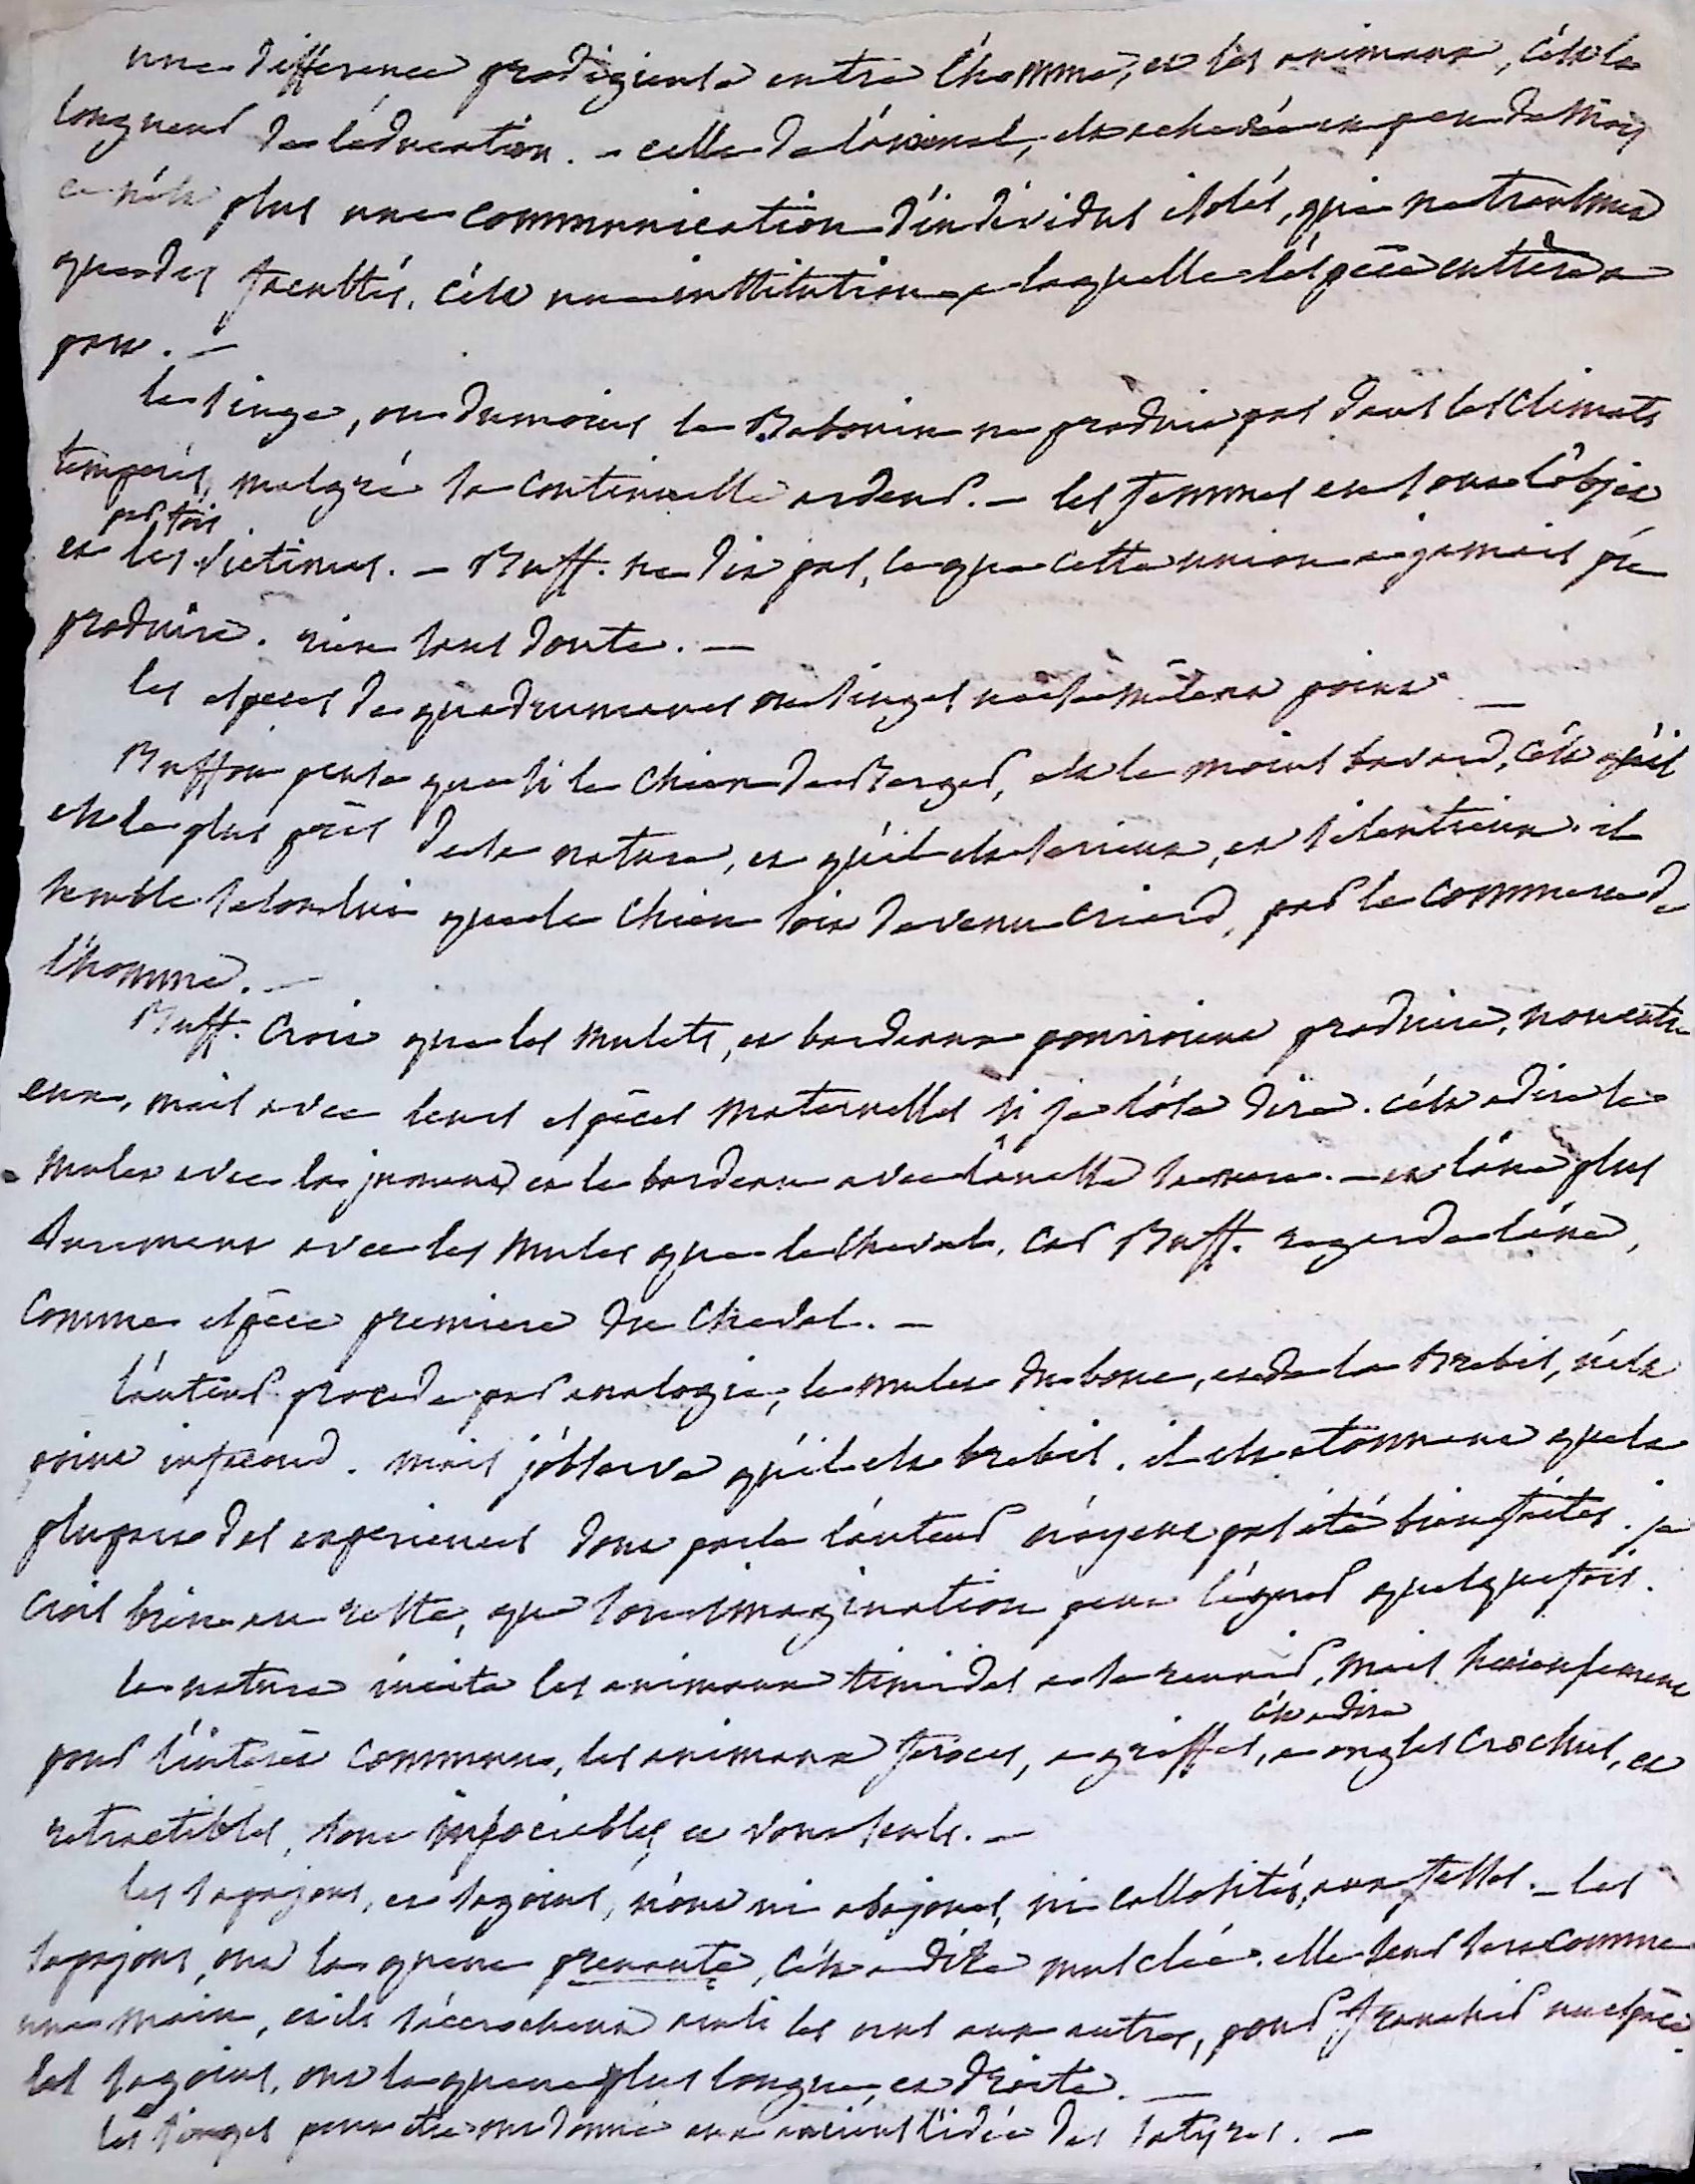 une difference prodigieuse entre l'homme, et les animaux, c'est la
longueur de l'éducation. - celle de l'animal, est achevée en peu de mois
ce n'est plus une communication d'individus isolés, qui ne transmet
que des facultés, c'est une institution a laquelle l'espèce entière a
part. -
le singe, ou du moins le Babouin ne produit pas dans les climats
temperés, malgré sa continuelle ardeur. - les femmes en sont l'objet
par fois
et les victimes. - Buff. ne dit pas, ce que cette union a jamais pu
produire. rien sans doute. -
les especes de quadrumanes ou singes ne se mêlent point -
Buffon pense que si le chien de Berger, est le moins bavard, c'est qu'il
est le plus près de la nature, et qu'il est serieux, et silentieux. il
semble selon lui que le chien soit devenu criard, par le commerce de
l'homme. -
Buff. croit que les mulets, et bardeaux pourroient produire, non entre
eux, mais avec leurs espèces maternelles si je l'ose dire. c'est a dire le
mulet avec la jument et le bardeau avec l'anesse sa mere. - et l'âne plus
surement avec les mules que le cheval, car Buff. regarde l'âne,
comme espèce premiere du cheval. -
l'auteur procede par analogie, le mulet du bouc, et de la Brebis, n'est
point infecond. mais j'observe qu'il est brebis. il est etonnant que la
plupart des experiences dont parle l'auteur n'ayent pas été bien faites. je
crois bien au reste, que son imagination peut l'egarer quelquefois.
la nature invite les animaux timides a se reunir, mais
pour l'intérêt commun, les animaux feroces, a griffes,
c'est a dire
a ongles crochus, et
retractibles, sont insociables et vont seuls. -
les sapajous, et sagoins, n'ont ni abajoues, ni callosités, aux fesses. - les
sapajous, ont la queue prenante, c'est a dire musclée. elle leur sert comme
une main, et ils s'accrochent ainsi les uns aux autres, pour franchir un espace
les sagoins, ont la queue plus longue, et droite. -
les singes peut etre ont donné aux anciens l'idée des satyres. -